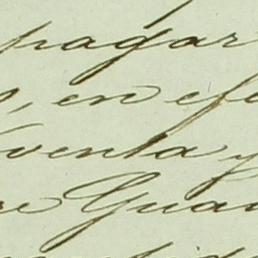 pagar
, en efe
venta y
re Gua